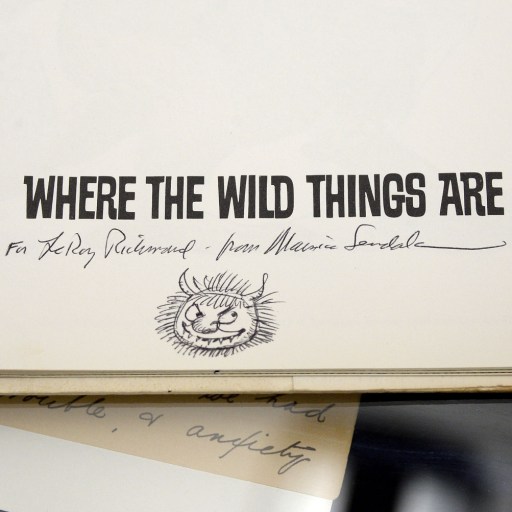 WHERE THE WILD THINGS ARE
For LeRoy Richmond - from Maurice Sendak
we had
trouble, & anxiety